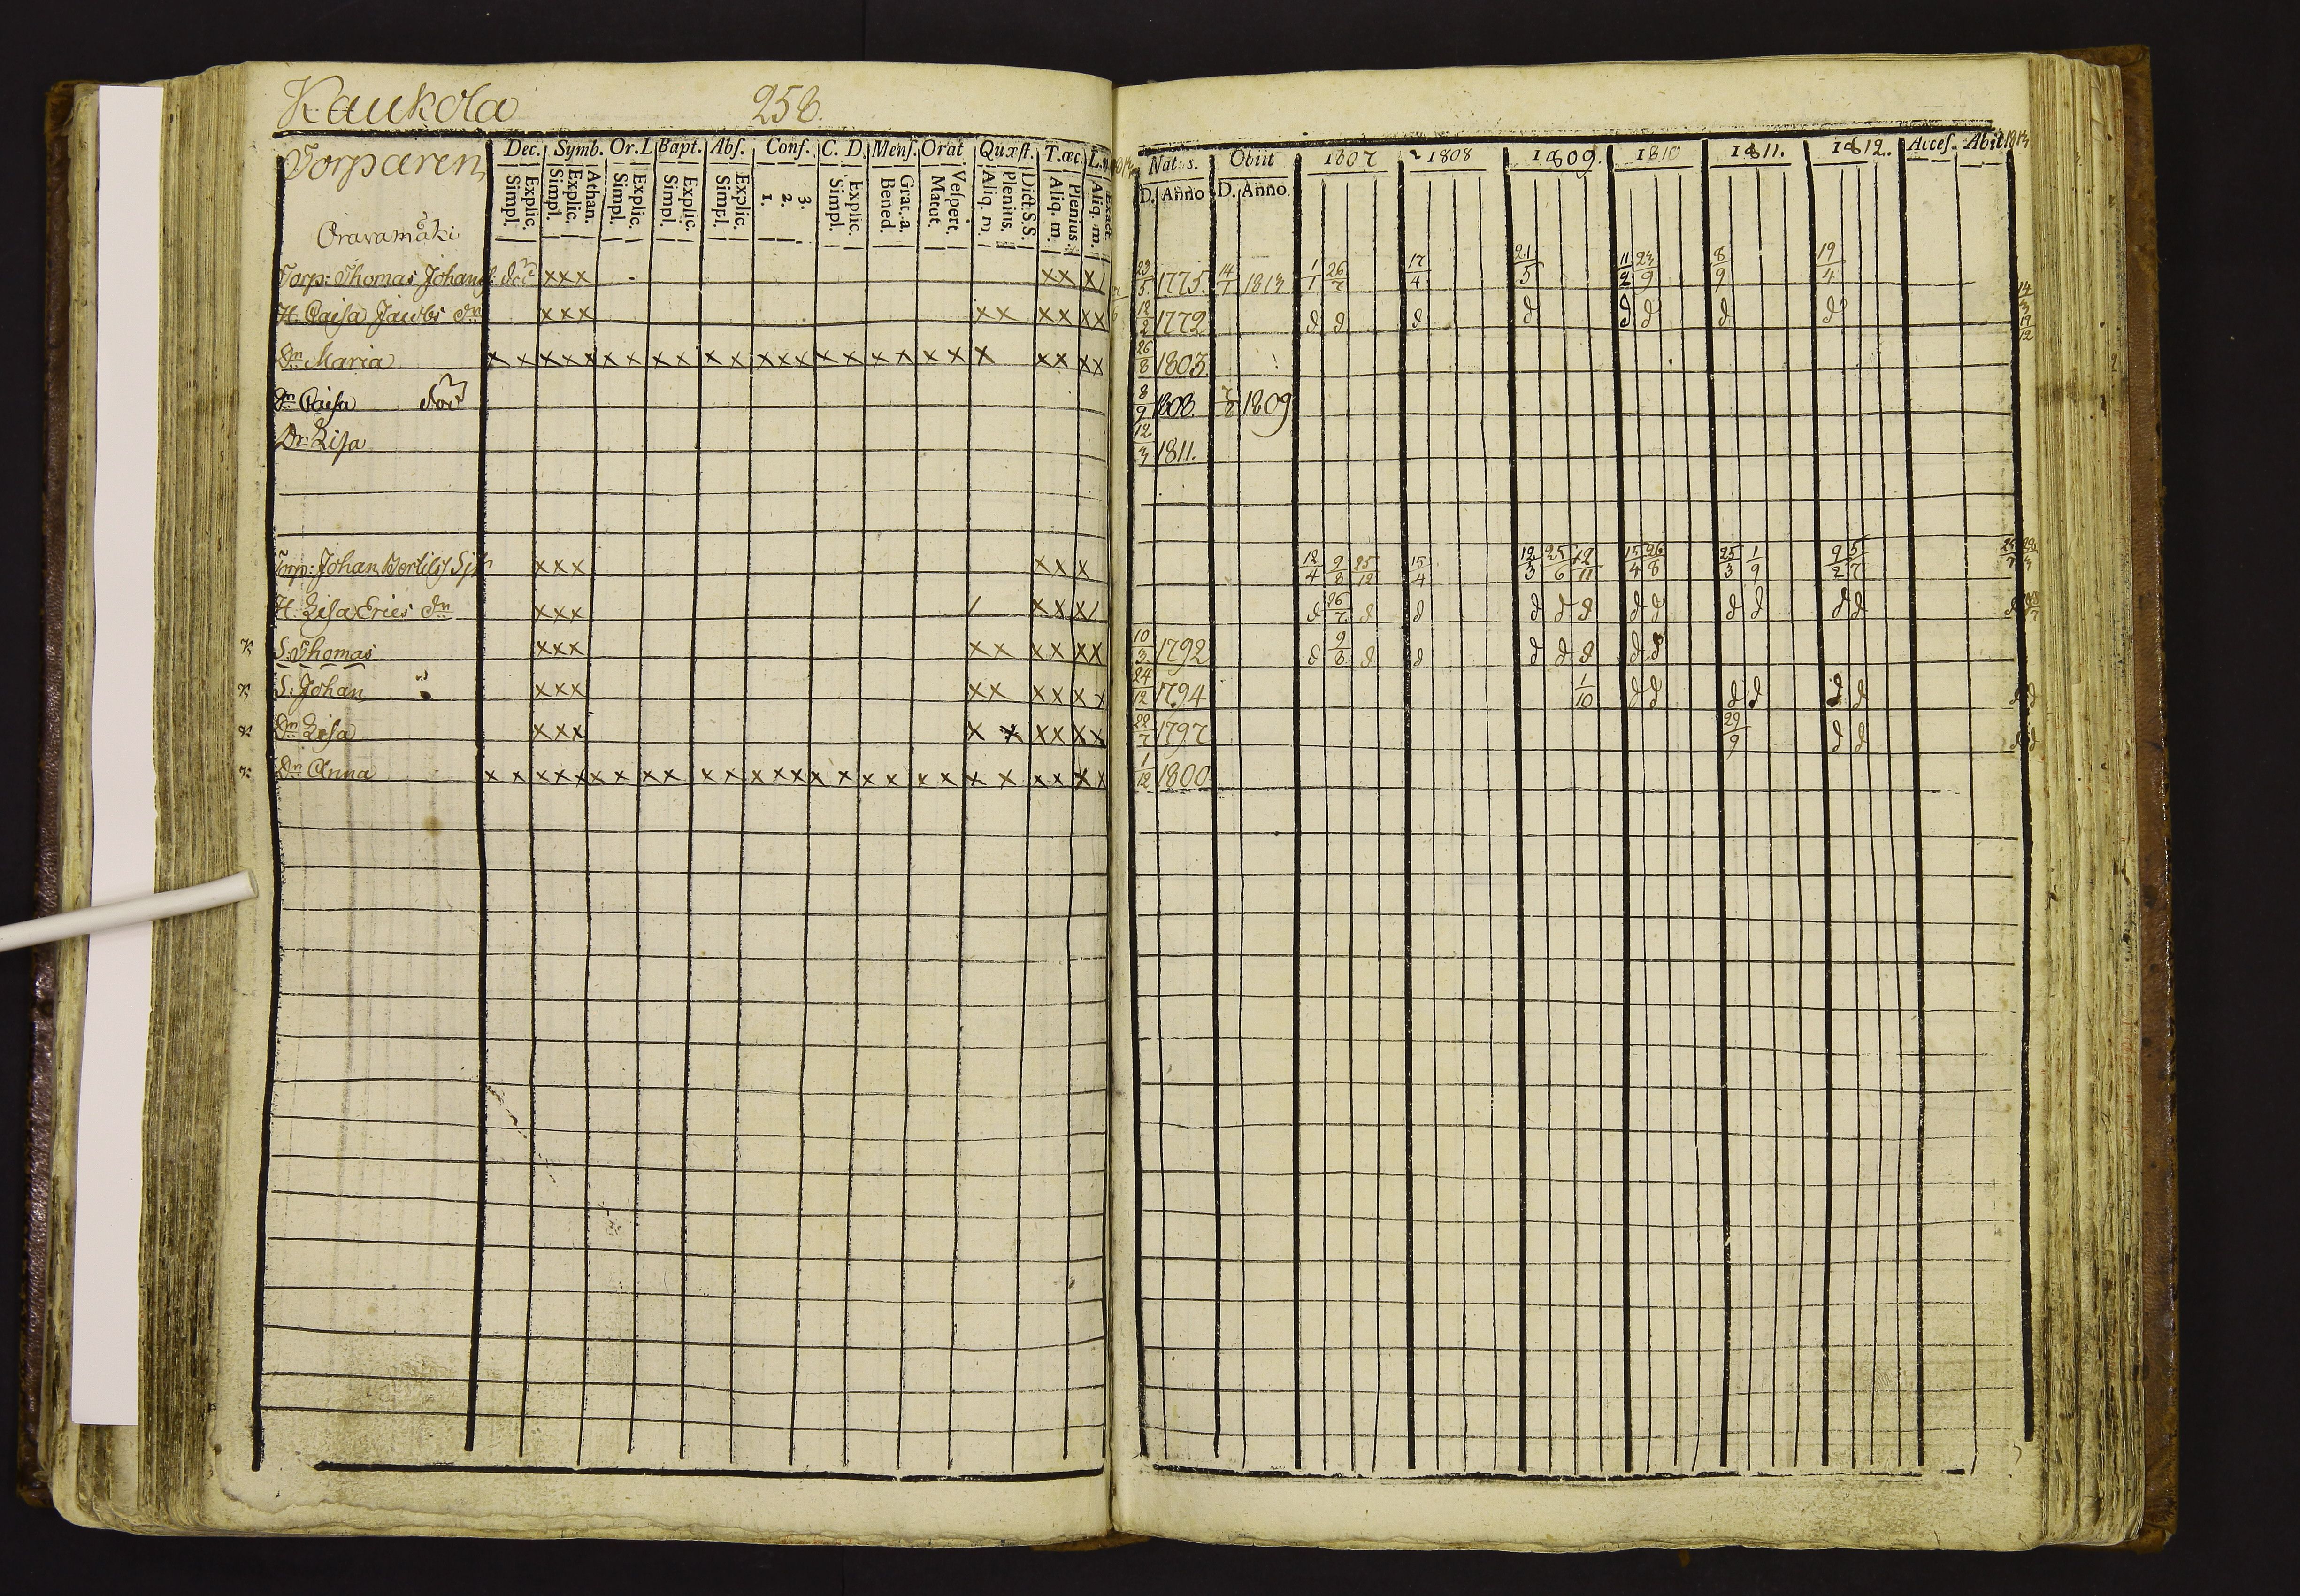 Kaukola 258.
Torparen Dec. Symb. Or. L Bapt. Abs. Conf. C. D. Mens. Orat Quæst. T. œc. L.
Simpl. Explic. Simpl. Explic. Athan. Simpl. Explic. Simpl. Explic. Simpl. Explic. 1. 2. 3. Simpl. Explic. Bened. Grat. a. Matut. Vespert. Aliq. m. Plenius. Dict. S.S. Aliq. m. Plenius. Aliq. m. Exacte
Oravamäki
Torp: Thomas Johans: död xxx xx x/
H. Caisa Jacobs dr xxx xx xx xx
Dr Maria x x xxx x x x x x x xxx x x x x x x x xx xx
Dr Caisa död
Dr Lisa
Torp: Johan Bertils Sjk xxx xx x
H. Lisa Erics dr xxx / xx x/
S: Thomas xxx xx xx xx
S: Johan xxx xx xx x x
Dr Lisa xxx x x xx xx
Dr Anna x x xxx x x x x x x xxx x x x x x x x x x x x x
Nat: s. Obiit 1807 1808 1809. 1810 1811. 1812. Acces. Abit 1813
D. Anno D. Anno
23/5 1775. 14/1 1813 1/1 26/7 17/4 21/5 11/2 23/9 8/9 19/4
12/2 1772 d d d d d d d d 14/3 19/12
26/8 1803.
8/9 1808. 7/8 1809
12/3 1811.
12/4 9/8 25/12 15/4 12/3 25/6 12/11 15/4 26/8 25/3 1/9 9/2 5/7
d 26/7 d d d d d d d d d d d
10/3 1792 d 9/8 d d d d d d d
24/12 1794 1/10 d d d d d d d d
22/7 1797 29/9 d d d d
1/12 1800